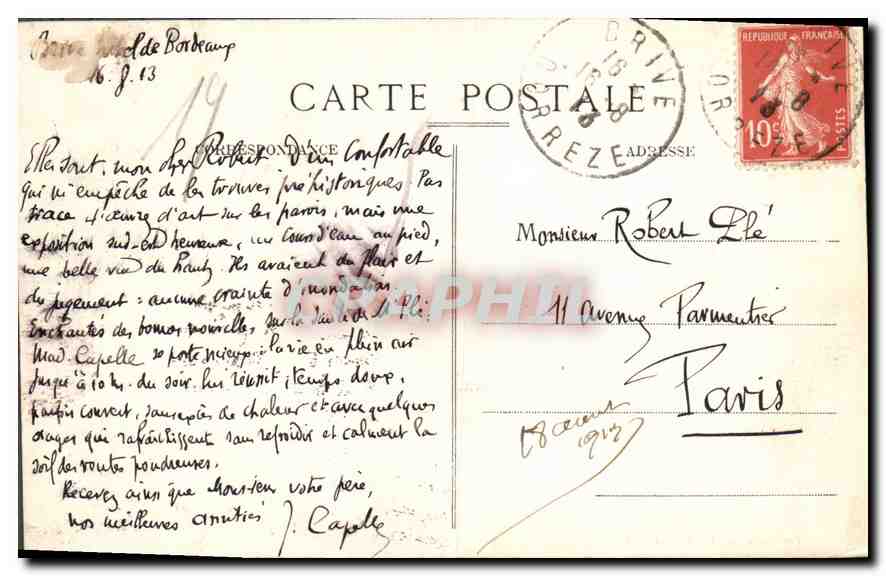 Brive Hôtel de Bordeaux
16.8.13
CARTE POSTALE
CORRESPONDANCE
ADRESSE
BRIVE
16 - 8
13
CORREZE
REPUBLIQUE FRANÇAISE
10c
POSTES
Elles sont, mon cher Robert d'un confortable
qui m'empêche de les trouver préhistoriques. Pas
trace d'œuvre d'art sur les parois, mais une
exposition sud-est heureuse, un cours d'eau au pied,
une belle vue du Ils avaient du flair et
du jugement : aucune crainte d'inondation.
Enchantés des bonnes nouvelles sur la santé de
Mad. Capelle se porte mieux : la vie en plein air
jusqu'à 10 h. du soir lui réussit ; temps doux,
parfois couvert, sans excès de chaleur et avec quelques
orages qui rafraîchissent sans refroidir et calment la
soif des routes poudreuses.
Recevez ainsi que Monsieur votre père,
nos meilleures amitiés J. Capelle
Monsieur Robert Plé
11 avenue Parmentier
Paris
18 1913
CARAPHIL